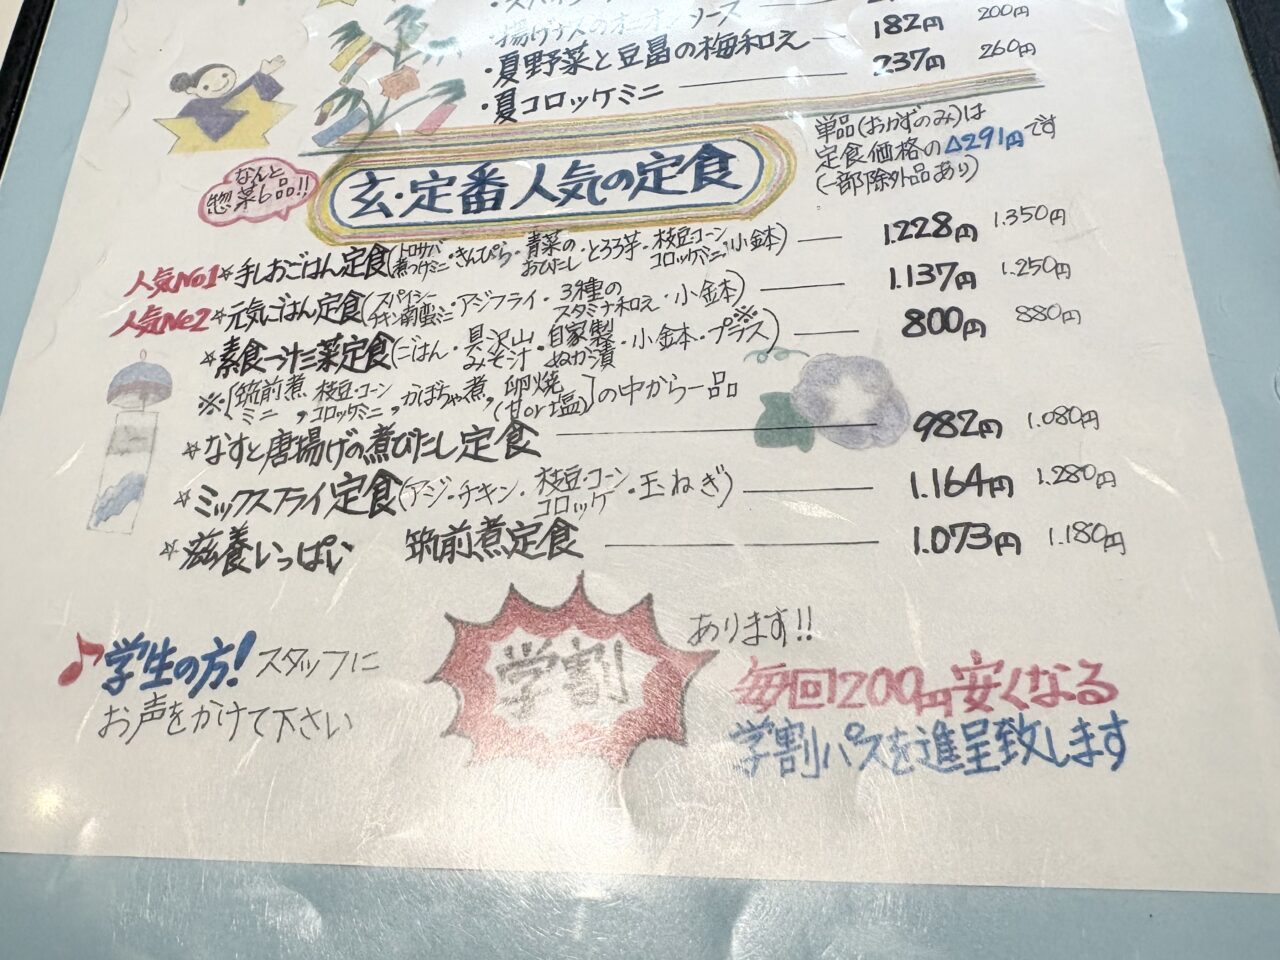 ソース
・揚げナスのオニオン 182円 200円
・夏野菜と豆昌の梅和え 237円 260円
・夏コロッケミニ
単品(おかずのみ)は
定食価格の△291円です
(一部除外品あり)
なんと
惣菜6品!!
玄・定番人気の定食
人気No1☆手しおごはん定食(トロサバ煮つけミニ・きんぴら・青菜のおひたし・とろろ芋・枝豆・コーンコロッケミニ・小鉢) 1.228円 1.350円
人気No2☆元気ごはん定食(スパイシーチキン南蛮ミニ・アジフライ・3種のスタミナ和え・小鉢) 1.137円 1.250円
☆素食一汁三菜定食(ごはん・具沢山みそ汁・自家製ぬか漬・小鉢・プラス※) 800円 880円
※[筑前煮ミニ, 枝豆・コーンコロッケミニ, かぼちゃ煮, 卵焼(甘or塩)]の中から一品
☆なすと唐揚げの煮びたし定食 982円 1.080円
☆ミックスフライ定食(アジ・チキン・枝豆・コーンコロッケ・玉ねぎ) 1.164円 1.280円
☆滋養いっぱい 筑前煮定食 1.073円 1.180円
♪学生の方!スタッフに
お声をかけて下さい
学割
あります!!
毎回200円安くなる
学割パスを進呈致します